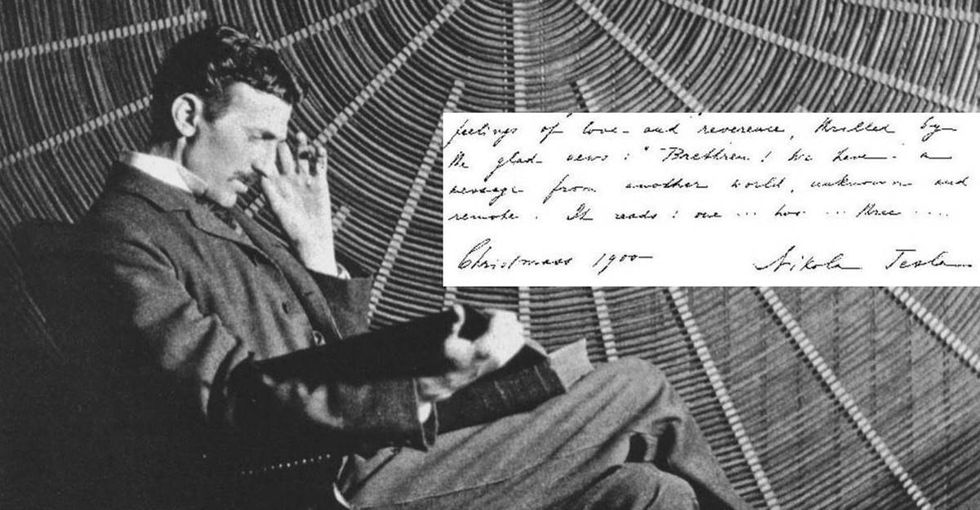 feelings of love and reverence, thrilled by
the glad news: "Brethren! We have a
message from another world, unknown and
remote. It reads: one ... two ... three ....
Christmass 1900
Nikola Tesla